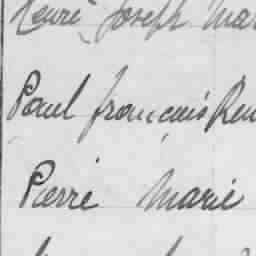 Henri Joseph Mar
Paul François Ren
Pierre Marie